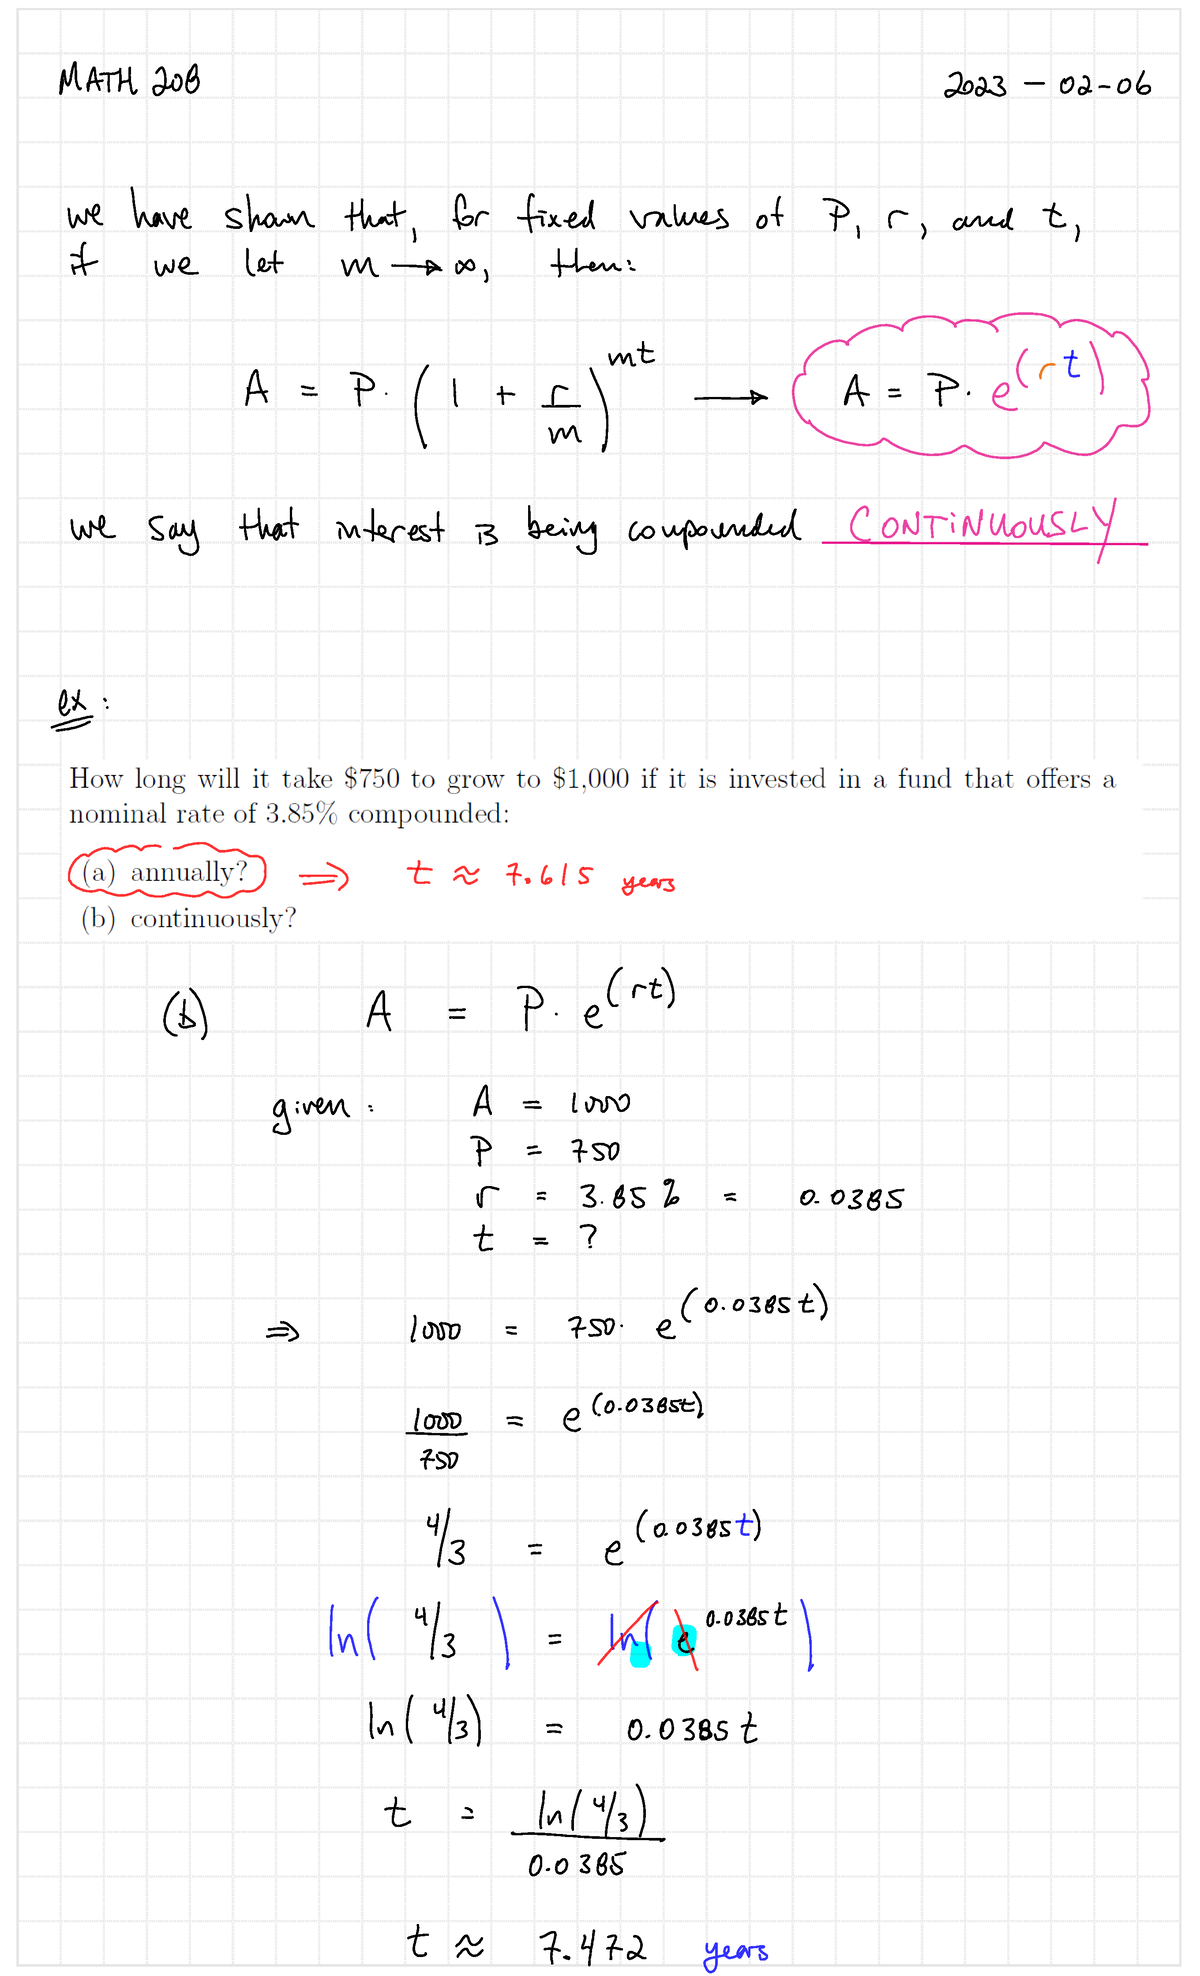 MATH 208 2023 - 02-06
we have shown that, for fixed values of P, r, and t,
if we let m → ∞, then:
A = P · (1 + r/m)^mt → A = P · e^(rt)
we say that interest is being compounded CONTINUOUSLY
ex :
How long will it take $750 to grow to $1,000 if it is invested in a fund that offers a
nominal rate of 3.85% compounded:
(a) annually? ⇒ t ≈ 7.615 years
(b) continuously?
(b) A = P · e^(rt)
given : A = 1000
P = 750
r = 3.85 % = 0.0385
t = ?
⇒ 1000 = 750 · e^(0.0385t)
1000/750 = e^(0.0385t)
4/3 = e^(0.0385t)
ln( 4/3 ) = ln( e^0.0385t )
ln( 4/3 ) = 0.0385 t
t = ln( 4/3 ) / 0.0385
t ≈ 7.472 years